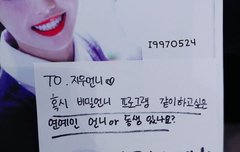 I9970524
TO. 지우언니♡
혹시 비밀언니 프로그램 같이하고싶은
연예인 언니or 동생 있나요?